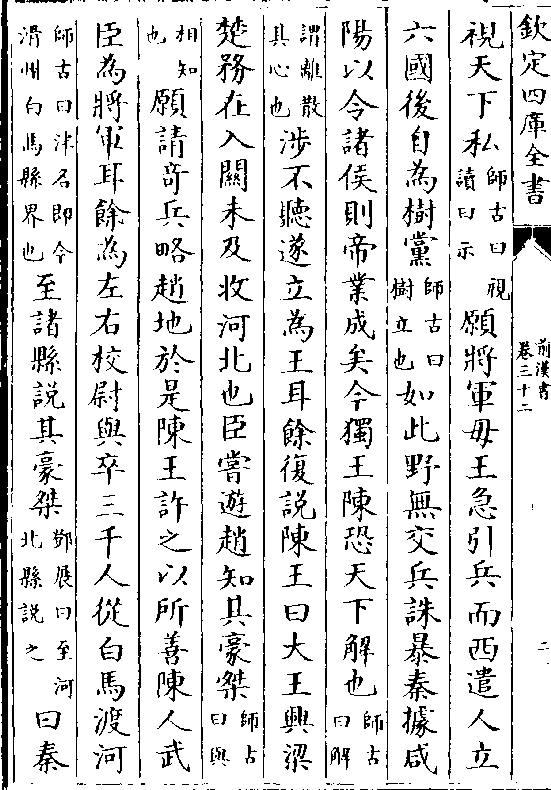 欽定四庫全書
前漢書
卷三十二
二
視天下私師古曰視讀曰示願將軍毋王急引兵而西遣人立
六國後自為樹黨師古曰樹立也如此野無交兵誅暴秦據咸
陽以令諸侯則帝業成矣今獨王陳恐天下解也師古曰解
謂離散其心也涉不聽遂立為王耳餘復說陳王曰大王興梁
楚務在入關未及收河北也臣嘗遊趙知其豪桀師古曰與
相知也願請奇兵略趙地於是陳王許之以所善陳人武
臣為將軍耳餘為左右校尉與卒三千人從白馬渡河
師古曰津名即今滑州白馬縣界也至諸縣說其豪桀鄧展曰至河北縣說之曰秦